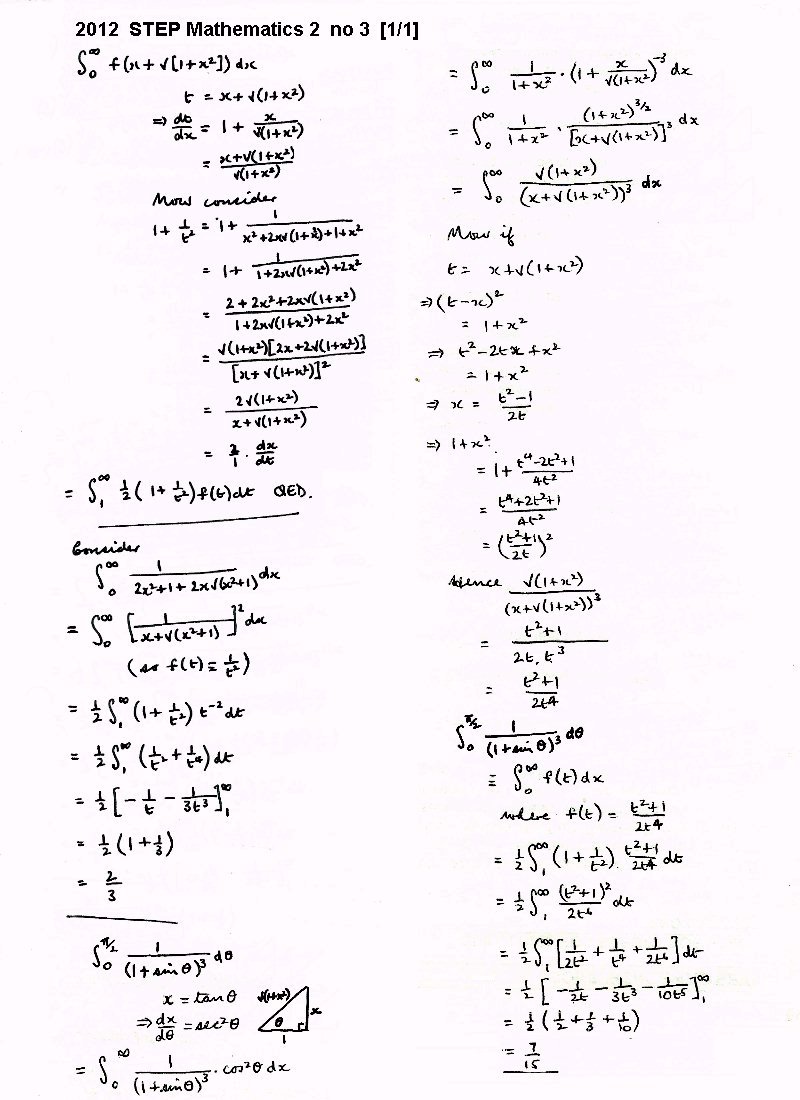 2012 STEP Mathematics 2 no 3 [1/1]
∫₀^∞ f(x + √[1+x²]) dx
t = x + √(1+x²)
⇒ dt/dx = 1 + x/√(1+x²)
= (x+√(1+x²))/√(1+x²)
Now consider
1 + 1/t² = 1 + 1/(x²+2x√(1+x²)+1+x²)
= 1 + 1/(1+2x√(1+x²)+2x²)
= (2+2x²+2x√(1+x²))/(1+2x√(1+x²)+2x²)
= √(1+x²)[2x+2√(1+x²)]/[x+√(1+x²)]²
= 2√(1+x²)/(x+√(1+x²))
= 2/1 · dx/dt
= ∫₁^∞ ½(1+1/t²) f(t) dt QED.
Consider
∫₀^∞ 1/(2x²+1+2x√(x²+1)) dx
= ∫₀^∞ [1/(x+√(x²+1))]² dx
(so f(t) = 1/t²)
= ½∫₁^∞ (1+1/t²) t⁻² dt
= ½∫₁^∞ (1/t² + 1/t⁴) dt
= ½[-1/t - 1/3t³]₁^∞
= ½(1+⅓)
= 2/3
∫₀^π/2 1/(1+sin θ)³ dθ
x = tan θ
⇒ dx/dθ = sec²θ
√(1+x²) x θ 1
= ∫₀^∞ 1/(1+sin θ)³ · cos²θ dx
= ∫₀^∞ 1/(1+x²) · (1 + x/√(1+x²))⁻³ dx
= ∫₀^∞ 1/(1+x²) · (1+x²)^3/2/[x+√(1+x²)]³ dx
= ∫₀^∞ √(1+x²)/(x+√(1+x²))³ dx
Now if
t = x+√(1+x²)
⇒ (t-x)²
= 1+x²
⇒ t²-2tx+x²
= 1+x²
⇒ x = (t²-1)/2t
⇒ 1+x²
= 1+ (t⁴-2t²+1)/4t²
= (t⁴+2t²+1)/4t²
= ((t²+1)/2t)²
Hence √(1+x²)/(x+√(1+x²))³
= (t²+1)/(2t. t³)
= (t²+1)/2t⁴
∫₀^π/2 1/(1+sin θ)³ dθ
≡ ∫₀^∞ f(t) dx
where f(t) = (t²+1)/2t⁴
= ½∫₁^∞ (1+1/t²). (t²+1)/2t⁴ dt
= ½∫₁^∞ (t²+1)²/2t⁶ dt
= ½∫₁^∞ [1/2t² + 1/t⁴ + 1/2t⁶] dt
= ½[-1/2t - 1/3t³ - 1/10t⁵]₁^∞
= ½(½+⅓+1/10)
= 7/15